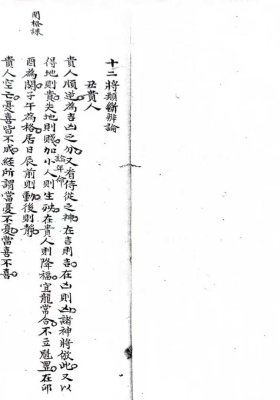 十二將類斷辨論
丑貴人
貴人順逆為吉凶之分又看侍從之神在吉則吉在凶則凶諸神將倣此又以
得地則貴失地則賤加小人則生殃在貴人則降福宜龍常合不立魁罡在卯
酉為關子午為格居日辰前則動後則靜
臨年命
貴人空亡憂喜皆不成經所謂當憂不憂當喜不喜
關格課